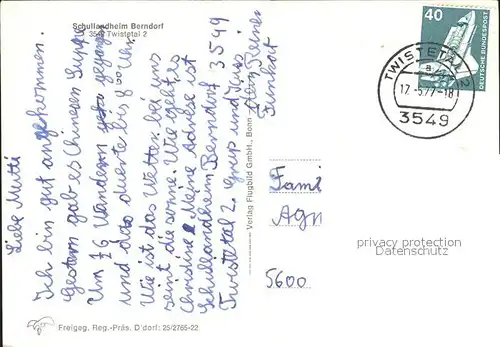 Schullandheim Berndorf
3549 Twistetal 2
Liebe Mutti
Ich bin gut angekommen.
Gestern gab es Chinesen Suppe
Um 7 6 Wandern gegangen
und das duerte bis 8⁰⁰ Uhr.
Wie ist das Wetter bei uns
seint die sonne. Wie geht es
Christine Meine Adrese ist
Schullandheim Berndorf 3549
Twistetal 2. Grup und Kuss
Dein Reiner
Verlag Flugbild GmbH., Bonn
Freigeg. Reg.-Präs. D'dorf: 25/2765-22
40
DEUTSCHE BUNDESPOST
TWISTETAL 2
a
17.-5.77-18
3549
Fami
Agn
5600
privacy protection
Datenschutz